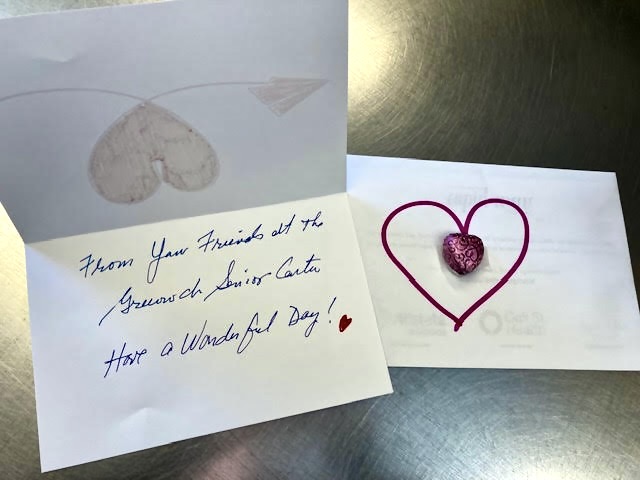 From Your Friends at the
Greenwich Senior Center
Have a Wonderful Day!